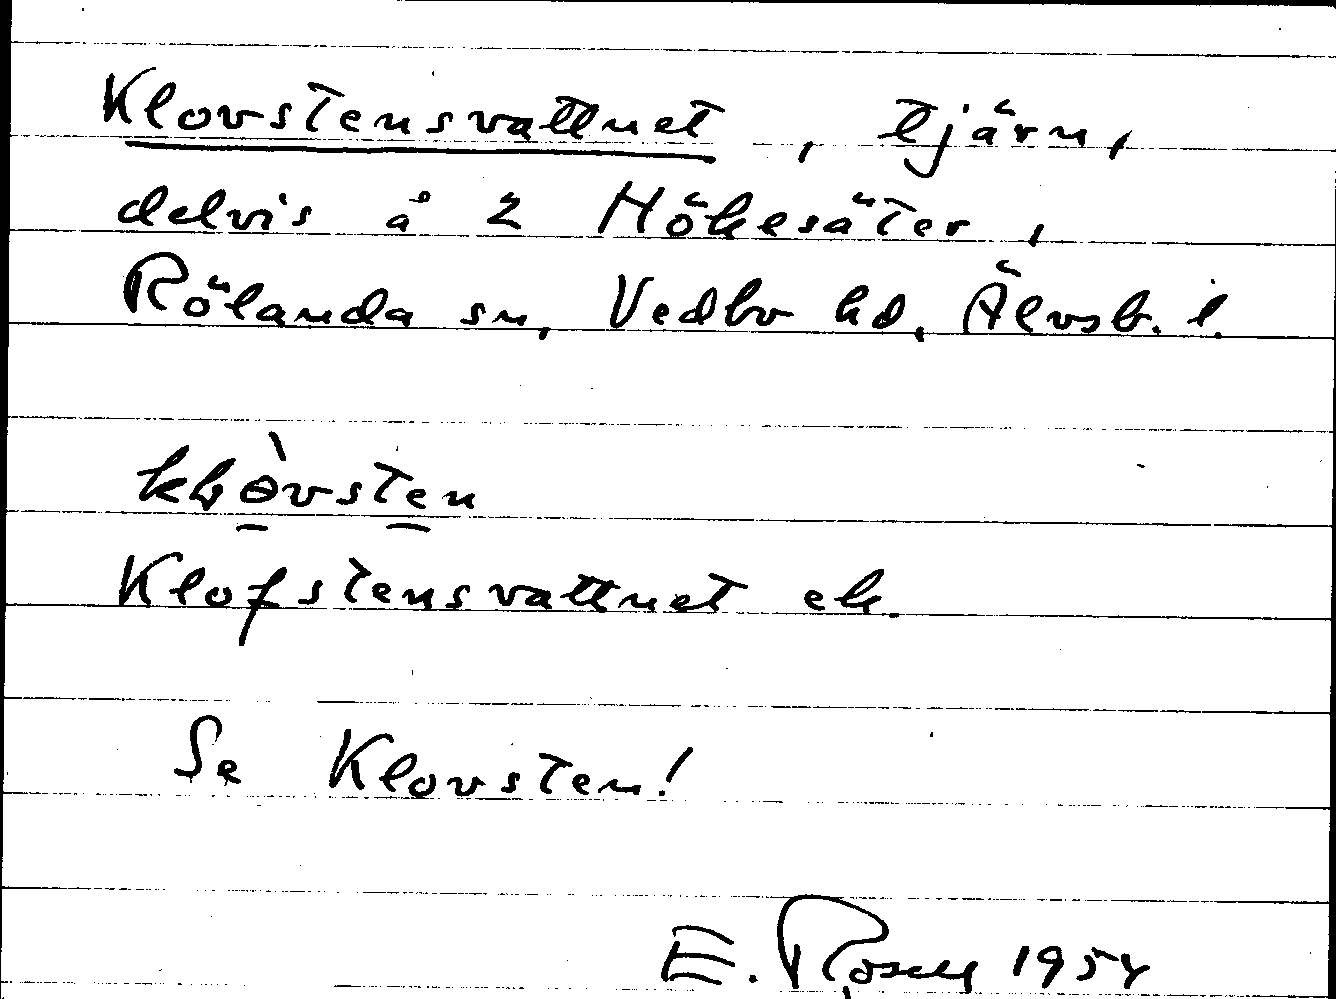 Klovstensvattnet, tjärn,
delvis å 2 Hökesäter,
Rölanda sn, Vedbo hd, Älvsb. l.
Klofstensvattnet ek.
Se Klovsten!
E. 1954